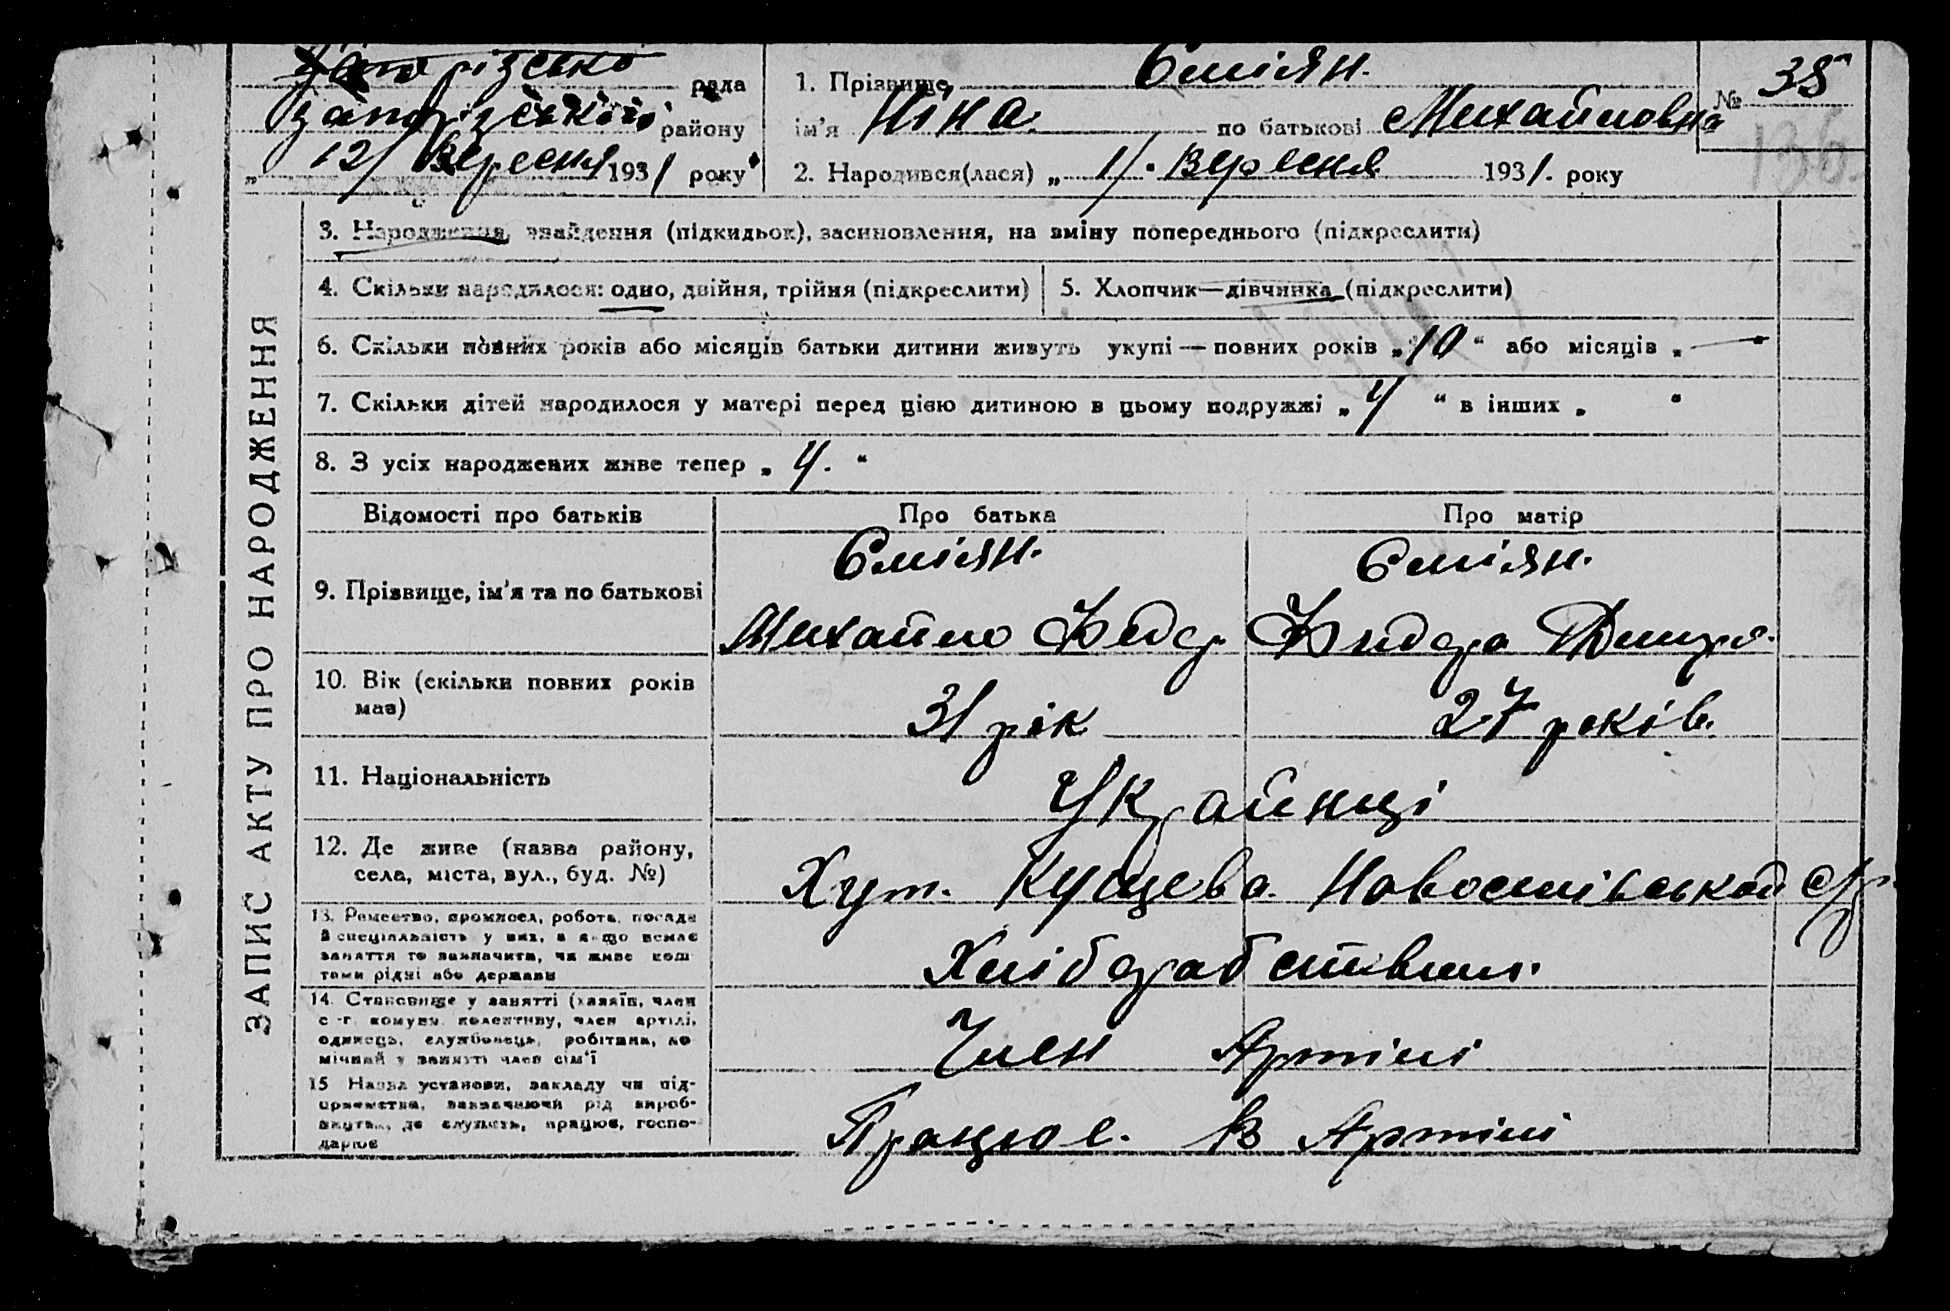 Запорізсько рада
Запорізького району
„ 12/ Вересня 1931 року
1. Прізвище Ємілян.
ім'я Ніна по батькові Михайловна
2. Народився(лася) „ 1/. Вересня 1931. року
№ 38
136
ЗАПИС АКТУ ПРО НАРОДЖЕННЯ
3. Народження, знайдення (підкидьок), засиновлення, на зміну попереднього (підкреслити)
4. Скільки народилося: одно, двійня, трійня (підкреслити)
5. Хлопчик—дівчинка (підкреслити)
6. Скільки повних років або місяців батьки дитини живуть укупі — повних років „ 10 “ або місяців „ — “
7. Скільки дітей народилося у матері перед цією дитиною в цьому подружжі „ 4 “ в інших „ “
8. З усіх народжених живе тепер „ 4. “
Відомості про батьків Про батька Про матір
9. Прізвище, ім'я та по батькові
Ємілян. Ємілян.
Михайло Федор Фидора Дмитр.
10. Вік (скільки повних років
має)
31 рік 27 років.
11. Національність
Українці
12. Де живе (назва району,
села, міста, вул., буд. №)
Хут. Кущева. Новоселівської с/р.
13. Ремество, промисел, робота, посада
й спеціяльність у них, а якщо немає
заняття то зазначити, чи живе кош
тами рідні або держави
Хліборобством.
14. Становище у занятті (хазяїн, член
с.-г. комуни, колективу, член артілі,
одинець, службовець, робітник, по
мічний у занятті член сім'ї
Член Артілі
15 Назва установи, закладу чи під-
приємства, зазначаючи рід вироб-
ництва, де служить, працює, госпо-
дарює
Працює. в Артілі